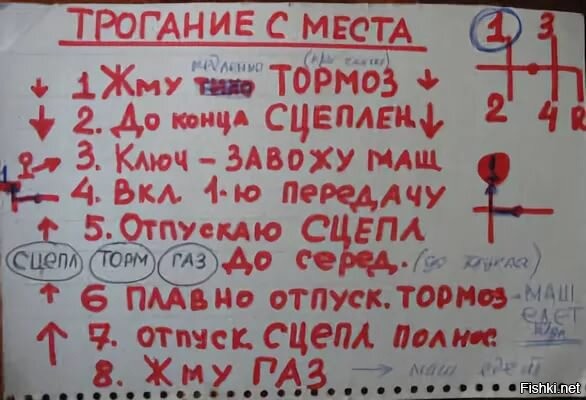 ТРОГАНИЕ С МЕСТА
1 3
2 4 R
1 Жму ТОРМОЗ
2. До конца СЦЕПЛЕН.
3. Ключ - ЗАВОЖУ МАШ
4. Вкл. 1-ю передачу
5. Отпускаю СЦЕПЛ
СЦЕПЛ ТОРМ ГАЗ До серед.
6 плавно отпуск. ТОРМОЗ - МАШ
ЕДЕТ
7. отпуск. СЦЕПЛ. полнос.
8. Жму ГАЗ → маш едет
Fishki.net